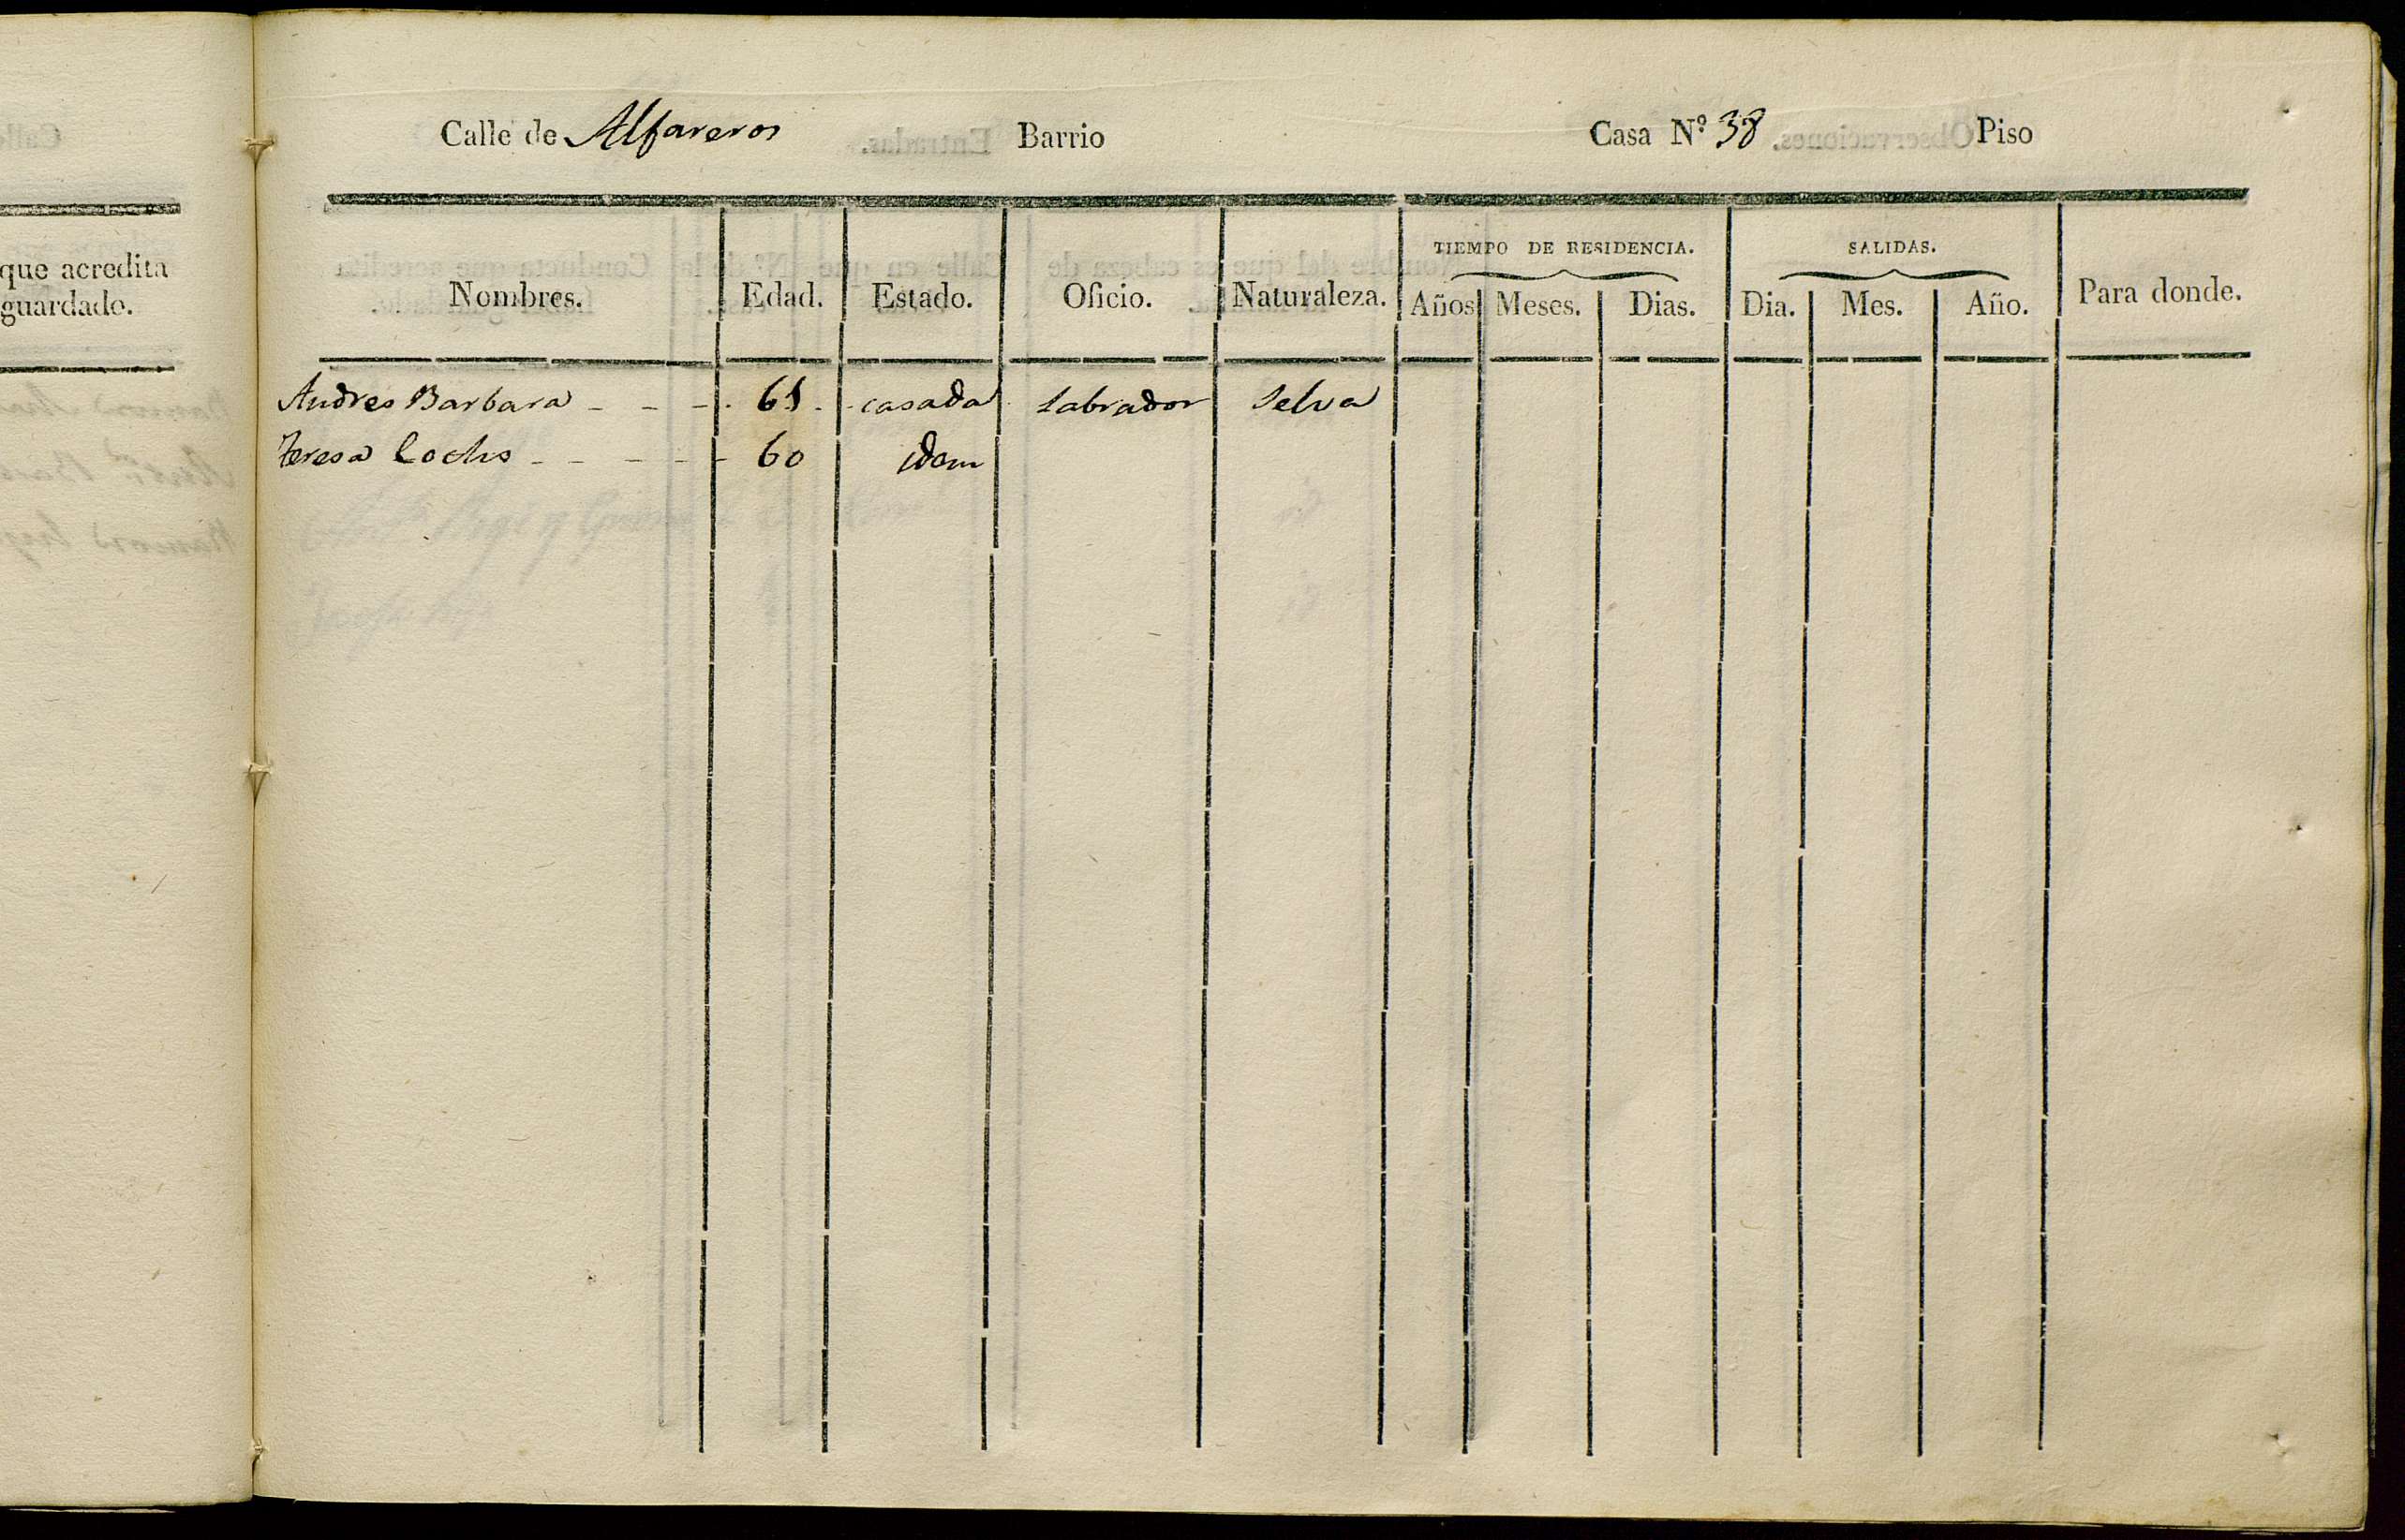 Calle de Alfareros Barrio Casa Nº 38 Piso
que acredita
guardado.
TIEMPO DE RESIDENCIA. SALIDAS.
Nombres. Edad. Estado. Oficio. Naturaleza. Años Meses. Dias. Dia. Mes. Año. Para donde.
Andres Barbara - - - 61 - casada labrador Selva
Teresa - - - - - 60 idem